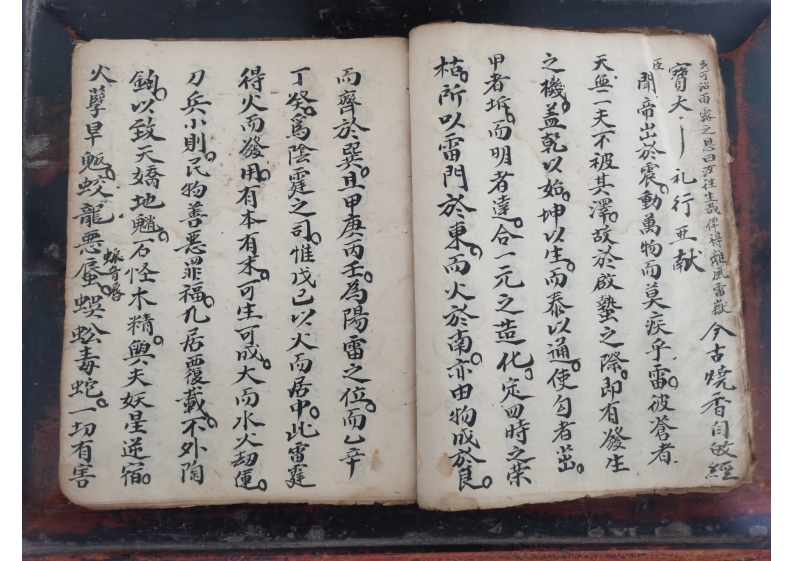 又可沾雨露之恩曰汝往生哉俾得離風雷嶽 今古燒香自啟經
寶大 礼行亚献
臣聞帝出於震動萬物而莫疾乎雷彼蒼者
天無一天不被其澤故於啟蟄之際即有發生
之機蓋乾以始坤以生而泰以通使勾者出
甲者坼而明者達合一元之造化定四時之荣
枯所以雷門於東而火於南亦由物成於艮
而齊於巽且甲庚丙壬為陽雷之位而乙辛
丁癸為陰霆之司惟戊己以火而居中此雷霆
得火而發用有本有末可生可成大而水火劫運
刀兵小則民物善惡罪福凡居覆載不外陶
鈞以致天嬌地魈石怪木精與夫妖星逆宿
火孽旱魃蛟龍悪蜃蜈蚣毒蛇一切有害